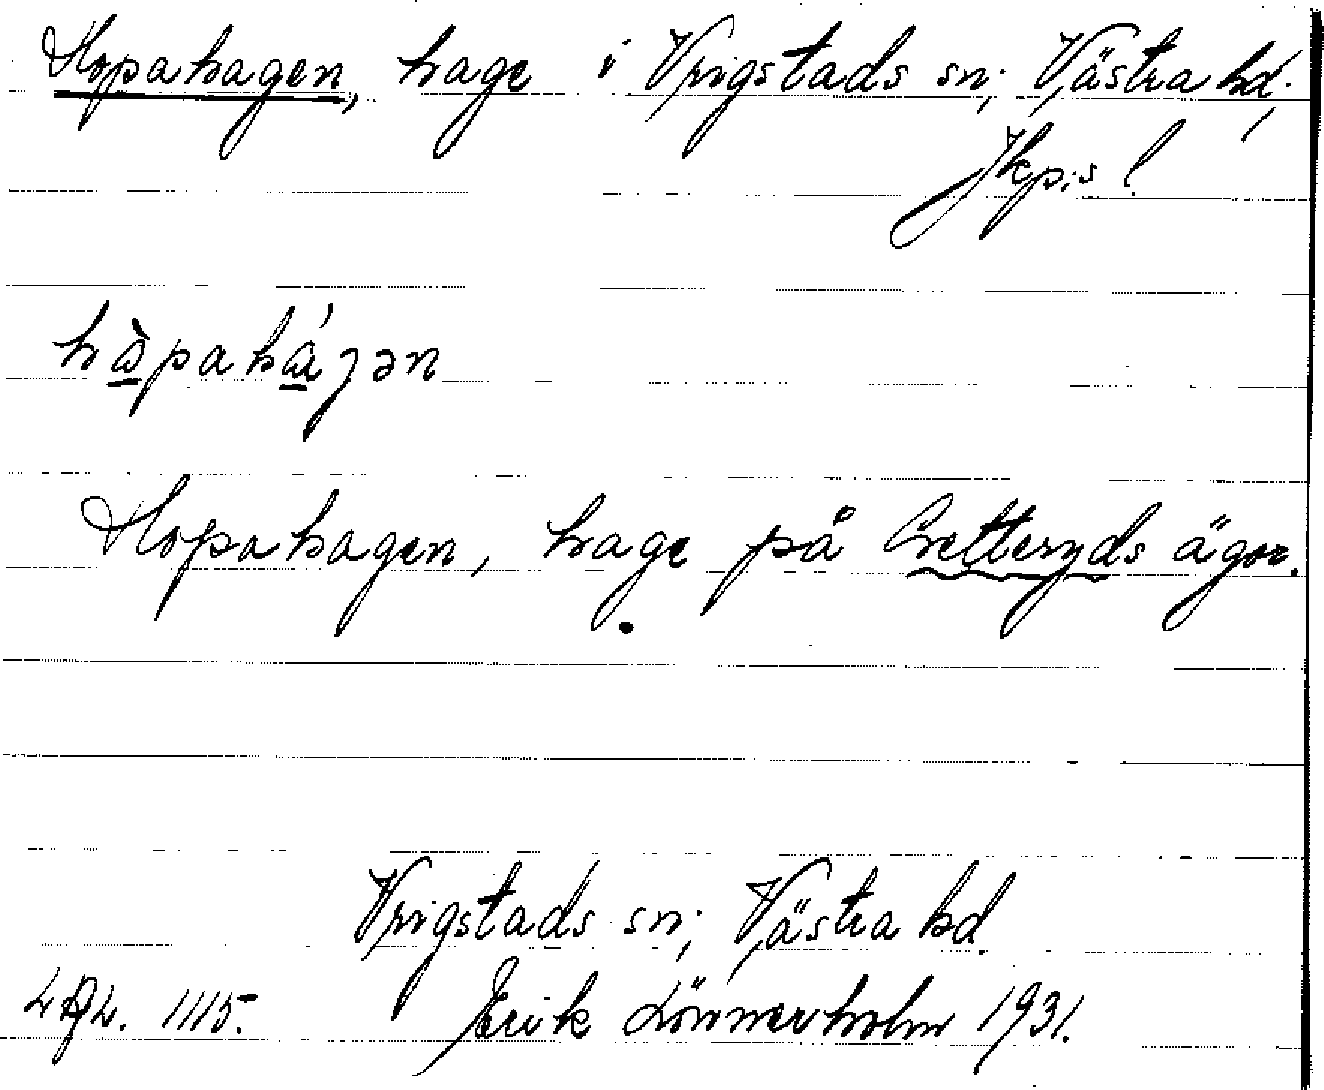 Hopahagen, hage i Vrigstads sn; Västra hd;
Jkp:s l
hàpahágən
Hopahagen, hage på Gretteryds ägor.
Vrigstads sn; Västra hd.
LAL. 1115. Erik Lönnerholm 1931.